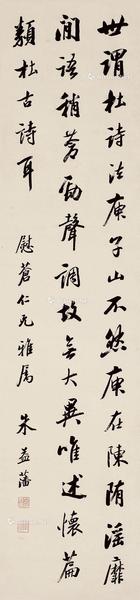 世谓杜诗法庾子山不然庾在陳隋淫靡
间语稍蒼勁聲調故无大異唯述懷篇
類杜古詩耳
慰蒼仁兄雅属
朱益藩